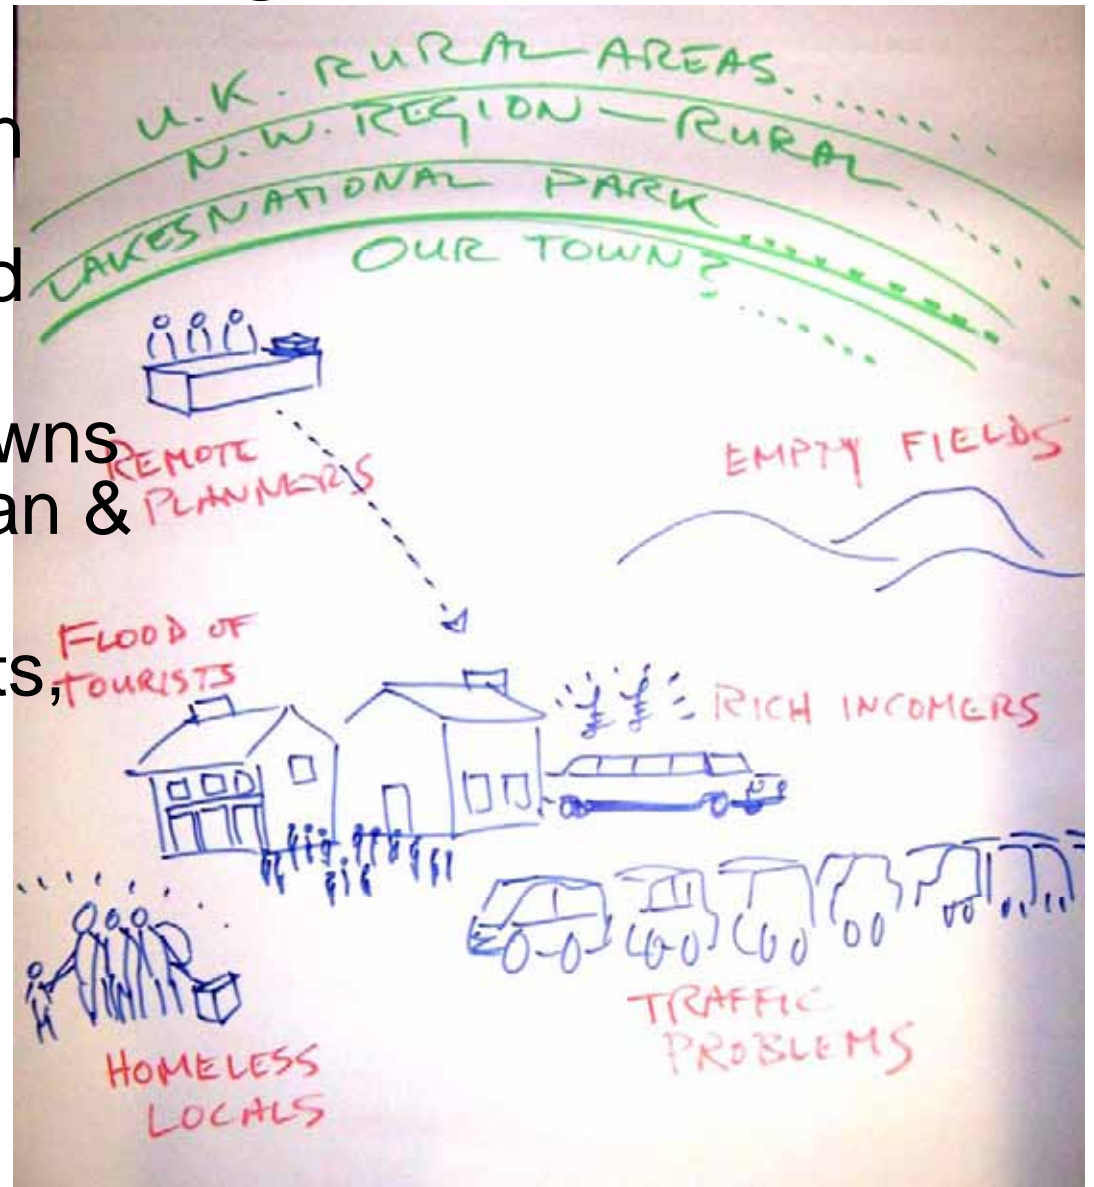 U.K. RURAL AREAS........
N.W. REGION — RURAL
LAKES NATIONAL PARK
OUR TOWN?
d
wns
REMOTE
PLANNERS
an &
EMPTY FIELDS
FLOOD OF
TOURISTS
ts,
RICH INCOMERS
TRAFFIC
PROBLEMS
HOMELESS
LOCALS